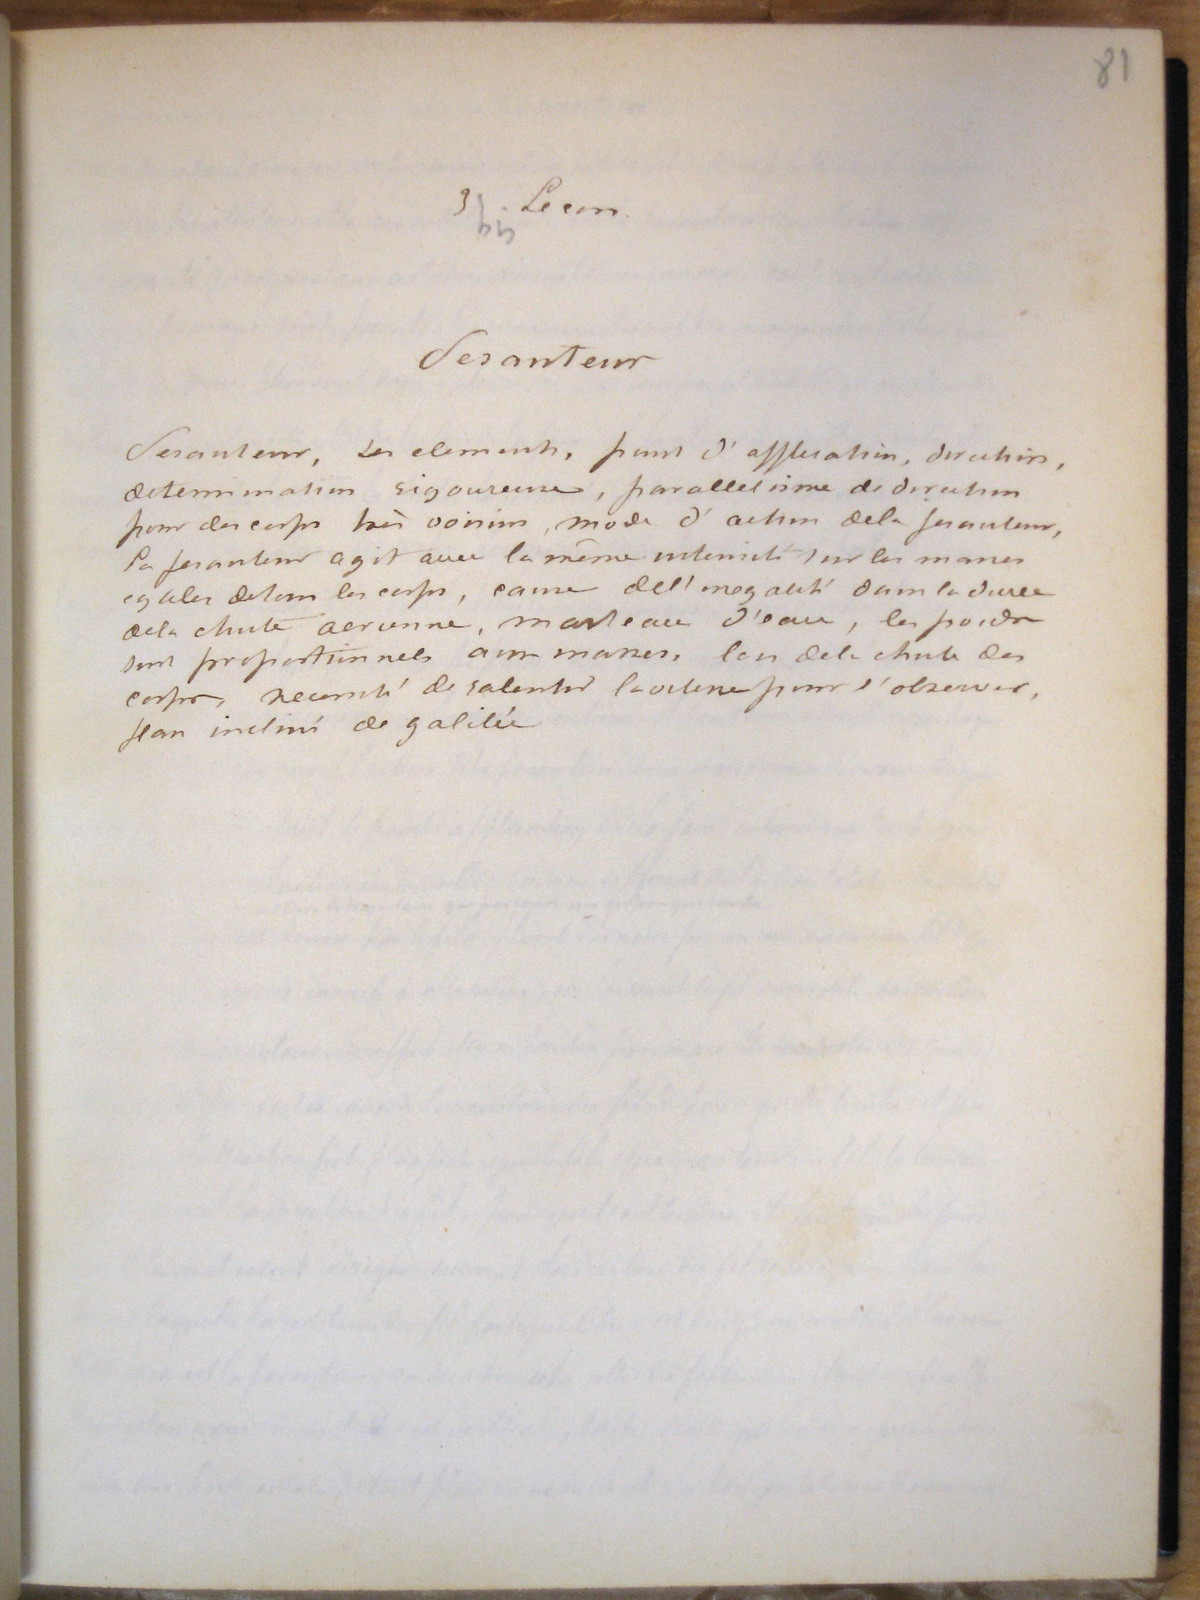 81
3 bis. Lecon.
Pesanteur
Pesanteur, ses elements, point d'application, direction,
determination rigoureuse, parallelisme de direction
pour des corps très voisins, mode d'action dela pesanteur,
la pesanteur agit avec la même intensité sur les masses
egales detous les corps, cause del'inegalité dans la durée
dela chute aerienne, marteau d'eau, les poids
sont proportionnels aux masses, lois dela chute des
corps, necessité de ralentir la vitesse pour l'observer,
plan incliné de galilée